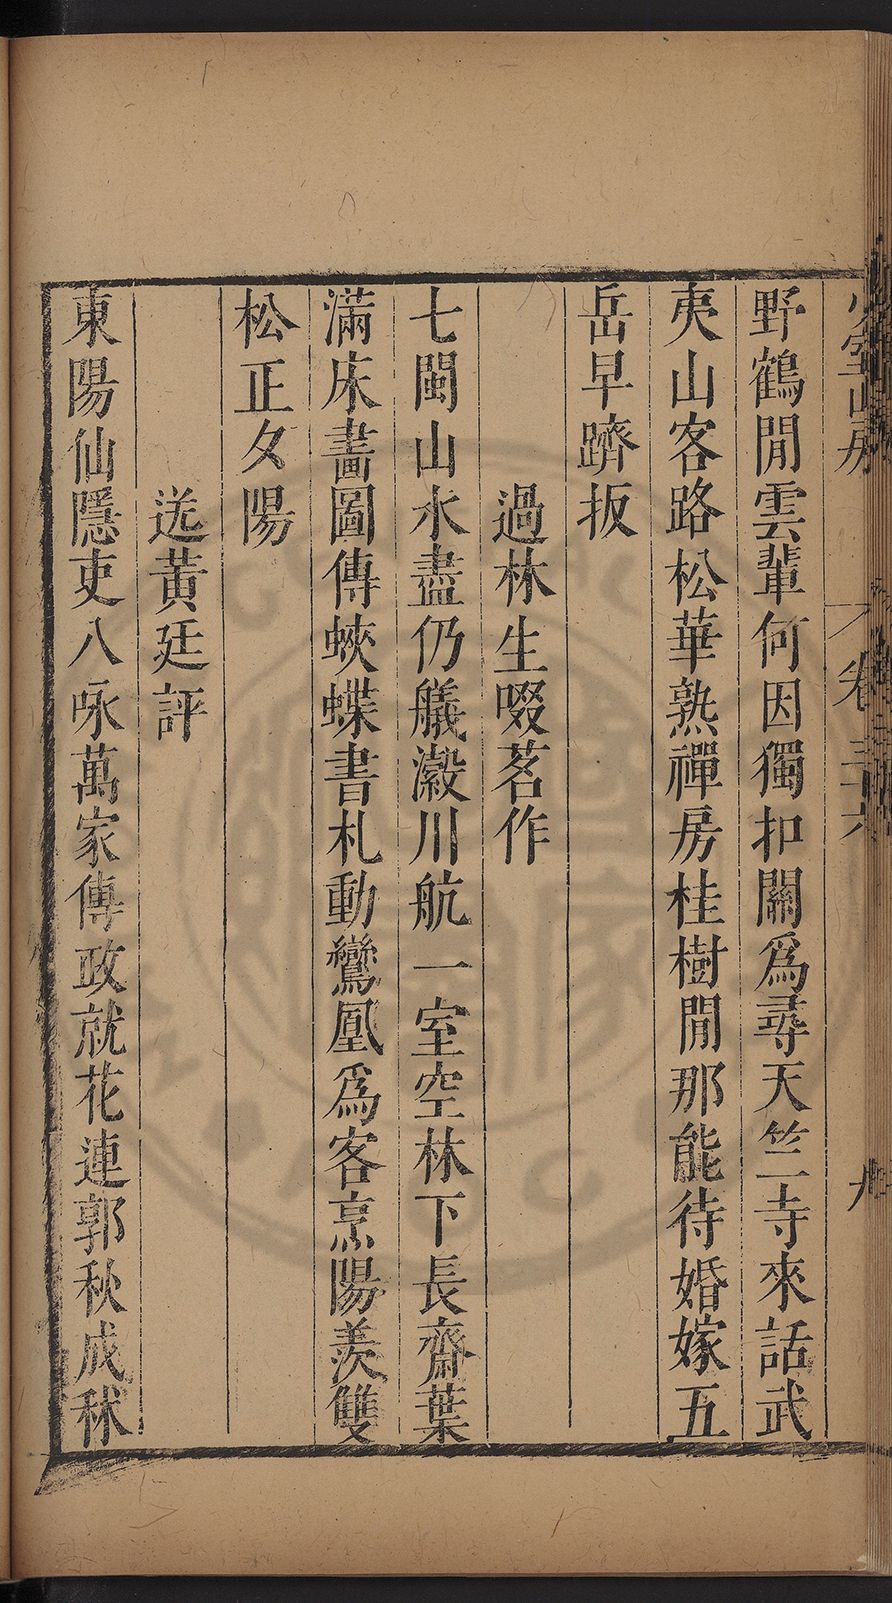 少室山房
卷三十六
九
野鶴閒雲輩何因獨扣關爲尋天竺寺來話武
夷山客路松華熟禪房桂樹閒那能待婚嫁五
岳早躋扳
過林生啜茗作
七閩山水盡仍艤瀫川航一室空林下長齋葉
滿床畵圖傳蛺蝶書札動鸞凰爲客烹陽羨雙
松正夕陽
送黃廷評
東陽仙隱吏八咏萬家傳政就花連郭秋成秫